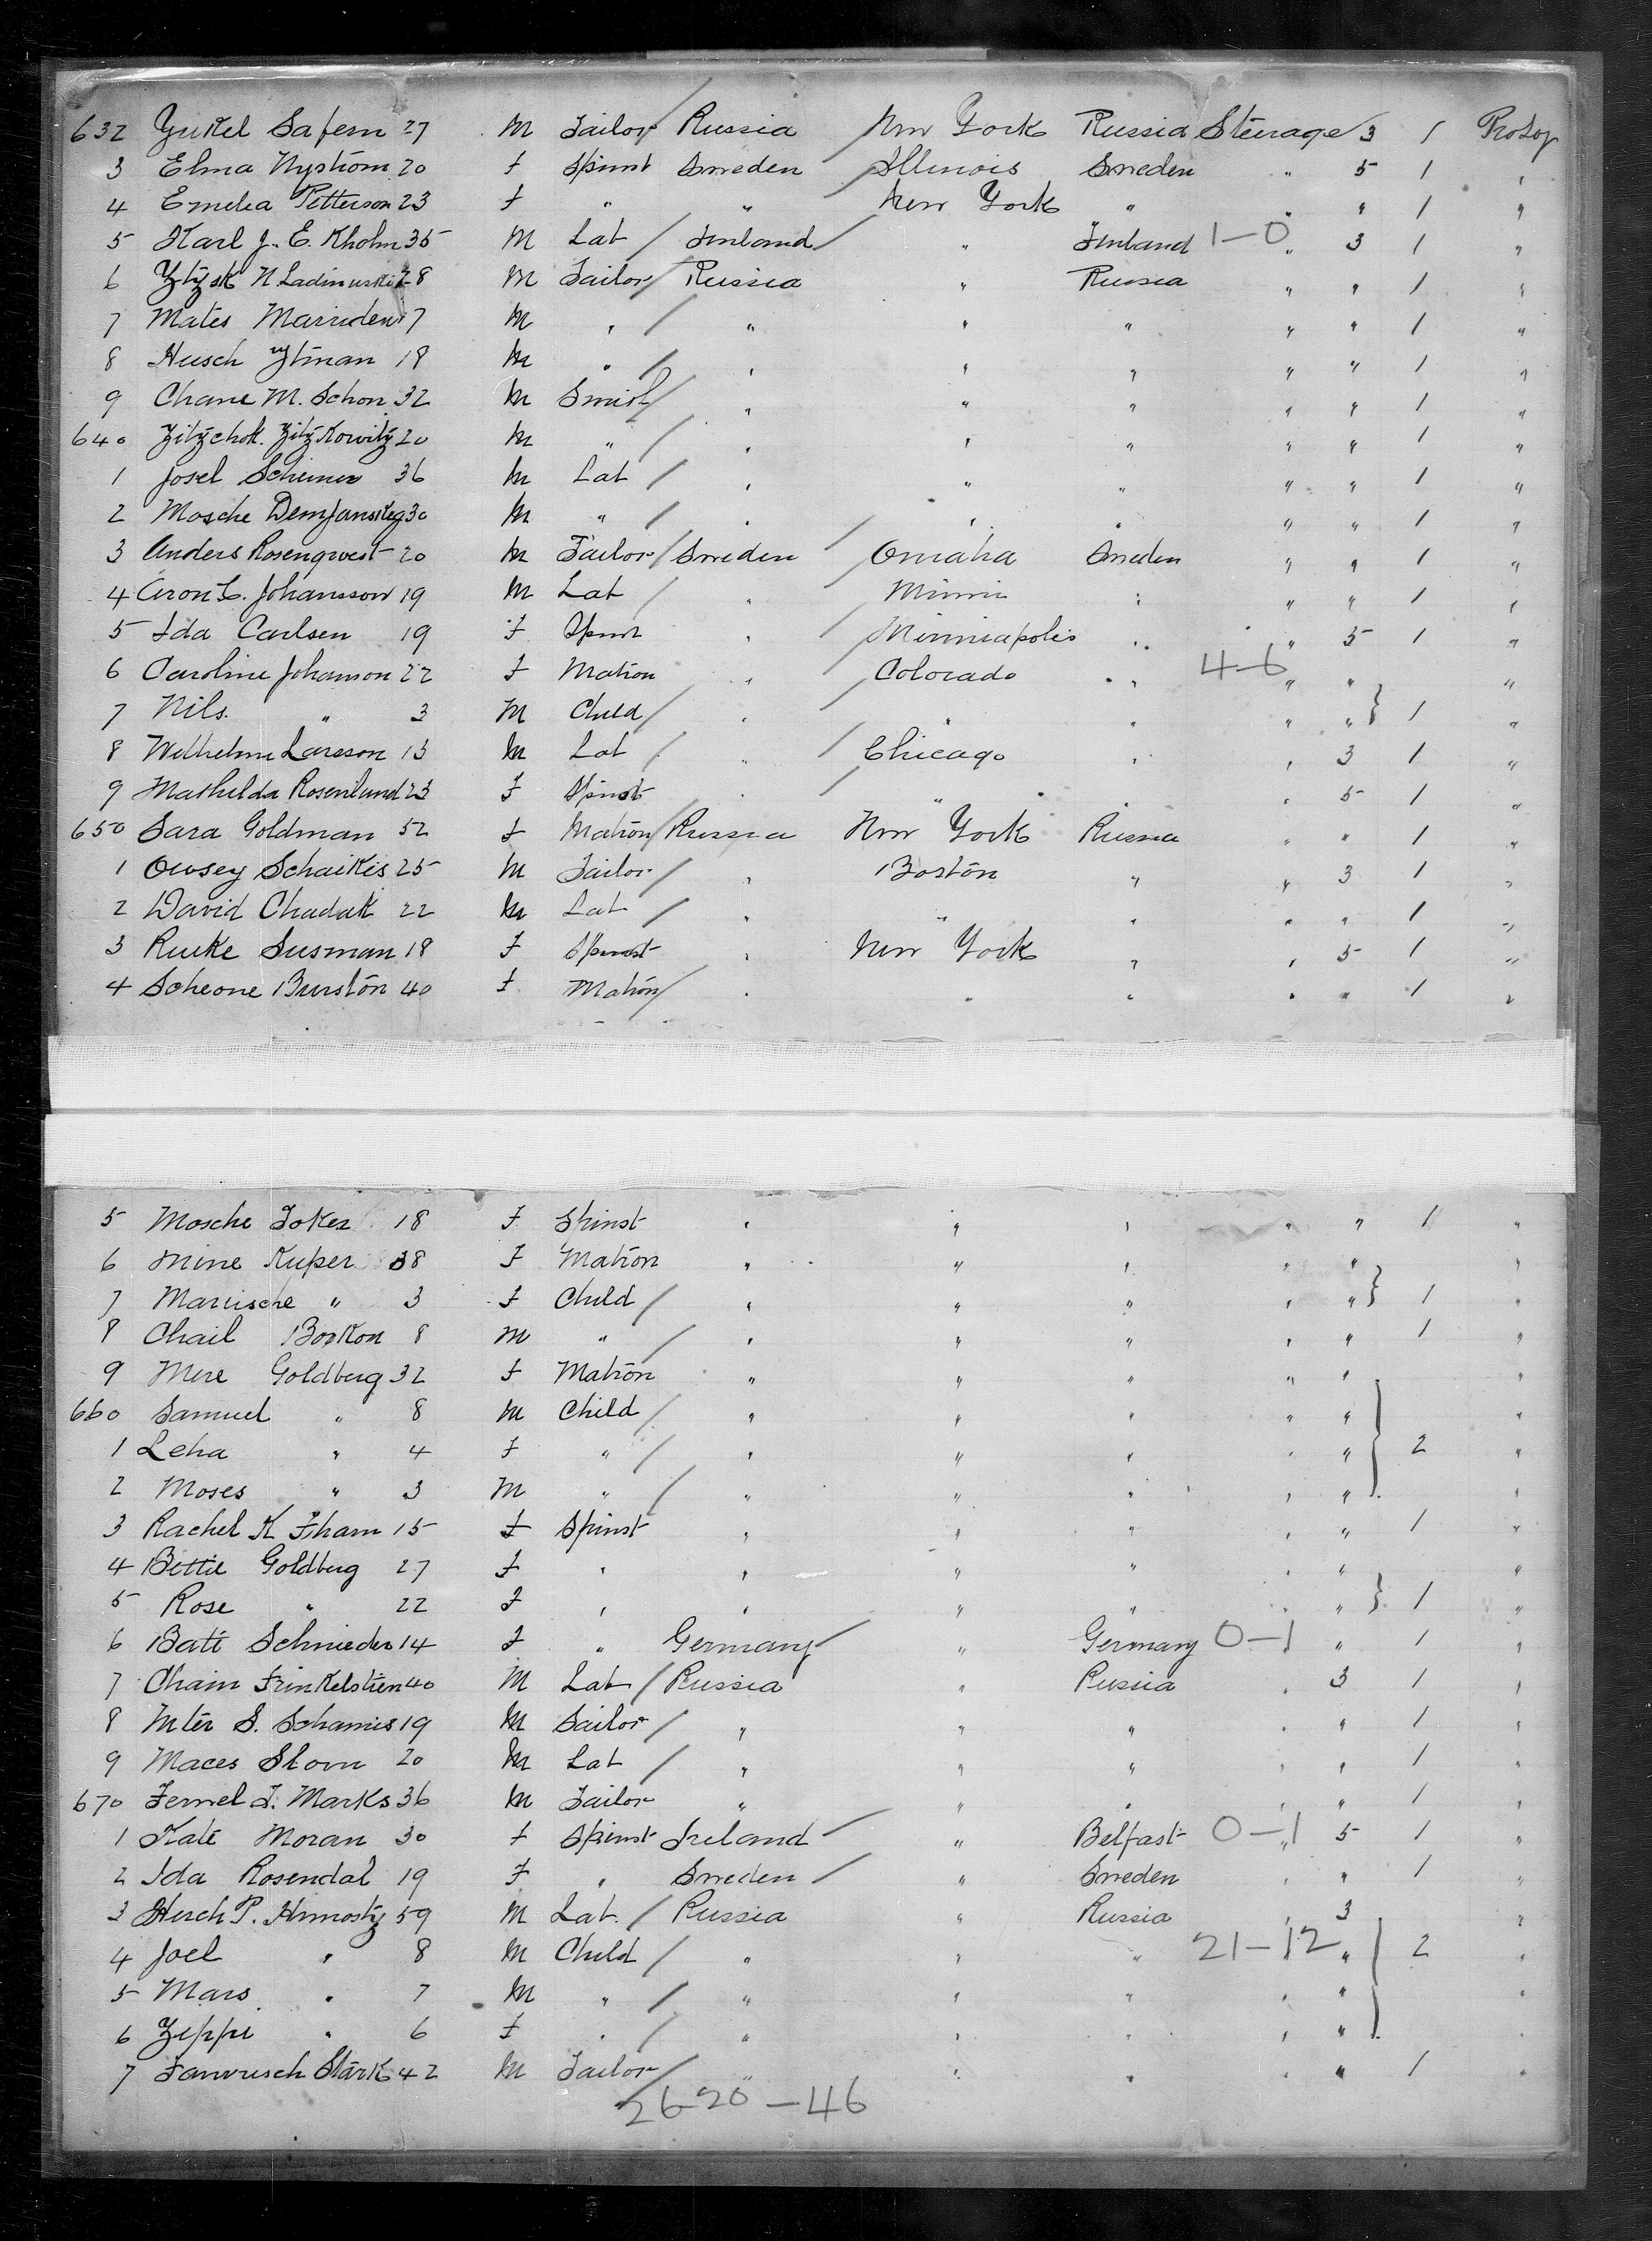 632 Yukel Safern 27 M Tailor / Russia New York Russia Steerage 3 1 ProSoj
3 Elma Nystrom 20 F Spinst Sweden / Illinois Sweden " 5 1 "
4 Emelia Petterson 23 F " " New York " " " 1 "
5 Karl J. E. Kholm 35 M Lab / Finland / " Finland 1-0 " 3 1 "
6 N Ladinuski 28 M Tailor / Russia " Russia " " 1 "
7 Mates 17 M " / " " " " " 1 "
8 Husch Ytman 18 M " / " " " " " 1 "
9 Chane M. Schon 32 M Smith / " " " " " 1 "
640 Zitzchok. Zitzkowitz 20 M " / " " " " " 1 "
1 Josel Scheiner 36 M Lab / " " " " " 1 "
2 Mosche 30 M " / " " " " " 1 "
3 Anders Rosenqwest 20 M Tailor / Sweden / Omaha Sweden " " 1 "
4 Aron L. Johansson 19 M Lab / " / Minni " " " 1 "
5 Ida Carlsen 19 F Spinst " / Minniapolis " " 5 1 "
6 Caroline Johanson 22 F Matron " / Colorado " 4-6 " " "
7 Nils. " 3 M Child / " / " " " " } 1 "
8 Wilhelm Larsson 15 M Lab / " / Chicago " " 3 1 "
9 Mathilda Rosenlund 23 F Spinst " / " " " 5 1 "
650 Sara Goldman 52 F Matron / Russia New York Russia " " 1 "
1 Owsey Schaikis 25 M Tailor / " Boston " " 3 1 "
2 David Chadak 22 M Lab / " " " " " 1 "
3 Rucke Susman 18 F Spinst " New York " " 5 1 "
4 Scheone Burston 40 F Matron / " " " " " 1 "
5 Mosche Joker 18 F Spinst " " " " " 1 "
6 Mine Kuper 38 F Matron " " " " " "
7 Marische " 3 F Child / " " " " " } 1 "
8 Chail Borkon 8 M " / " " " " " 1 "
9 Mere Goldberg 32 F Matron " " " " " "
660 Samuel " 8 M Child / " " " " " "
1 Leha " 4 F " / " " " " " } 2 "
2 Moses " 3 M " / " " " " " "
3 Rachel K 15 F Spinst " " " " " 1 "
4 Bettie Goldberg 27 F " " " " " " "
5 Rose " 22 F " " " " " " } 1 "
6 Bati Schnieder 14 F " Germany / " Germany 0-1 " " 1 "
7 Chain Frinkelstien 40 M Lab / Russia " Russia " 3 1 "
8 S. Schamis 19 M Sailor / " " " " " 1 "
9 Maces Slovn 20 M Lab / " " " " " 1 "
670 Marks 36 M Tailor " " " " " 1 "
1 Kate Moran 30 F Spinst Ireland / " Belfast 0-1 " 5 1 "
2 Ida Rosendal 19 F " Sweden / " Sweden " " 1 "
3 Herch P. 59 M Lab. / Russia " Russia " 3 "
4 Joel " 8 M Child / " " " 21-12 " } 2 "
5 Mars " 7 M " / " " " " " "
6 Zippi " 6 F " / " " " " " "
7 Stark 42 M Tailor / " " " " " 1 "
26-20-46